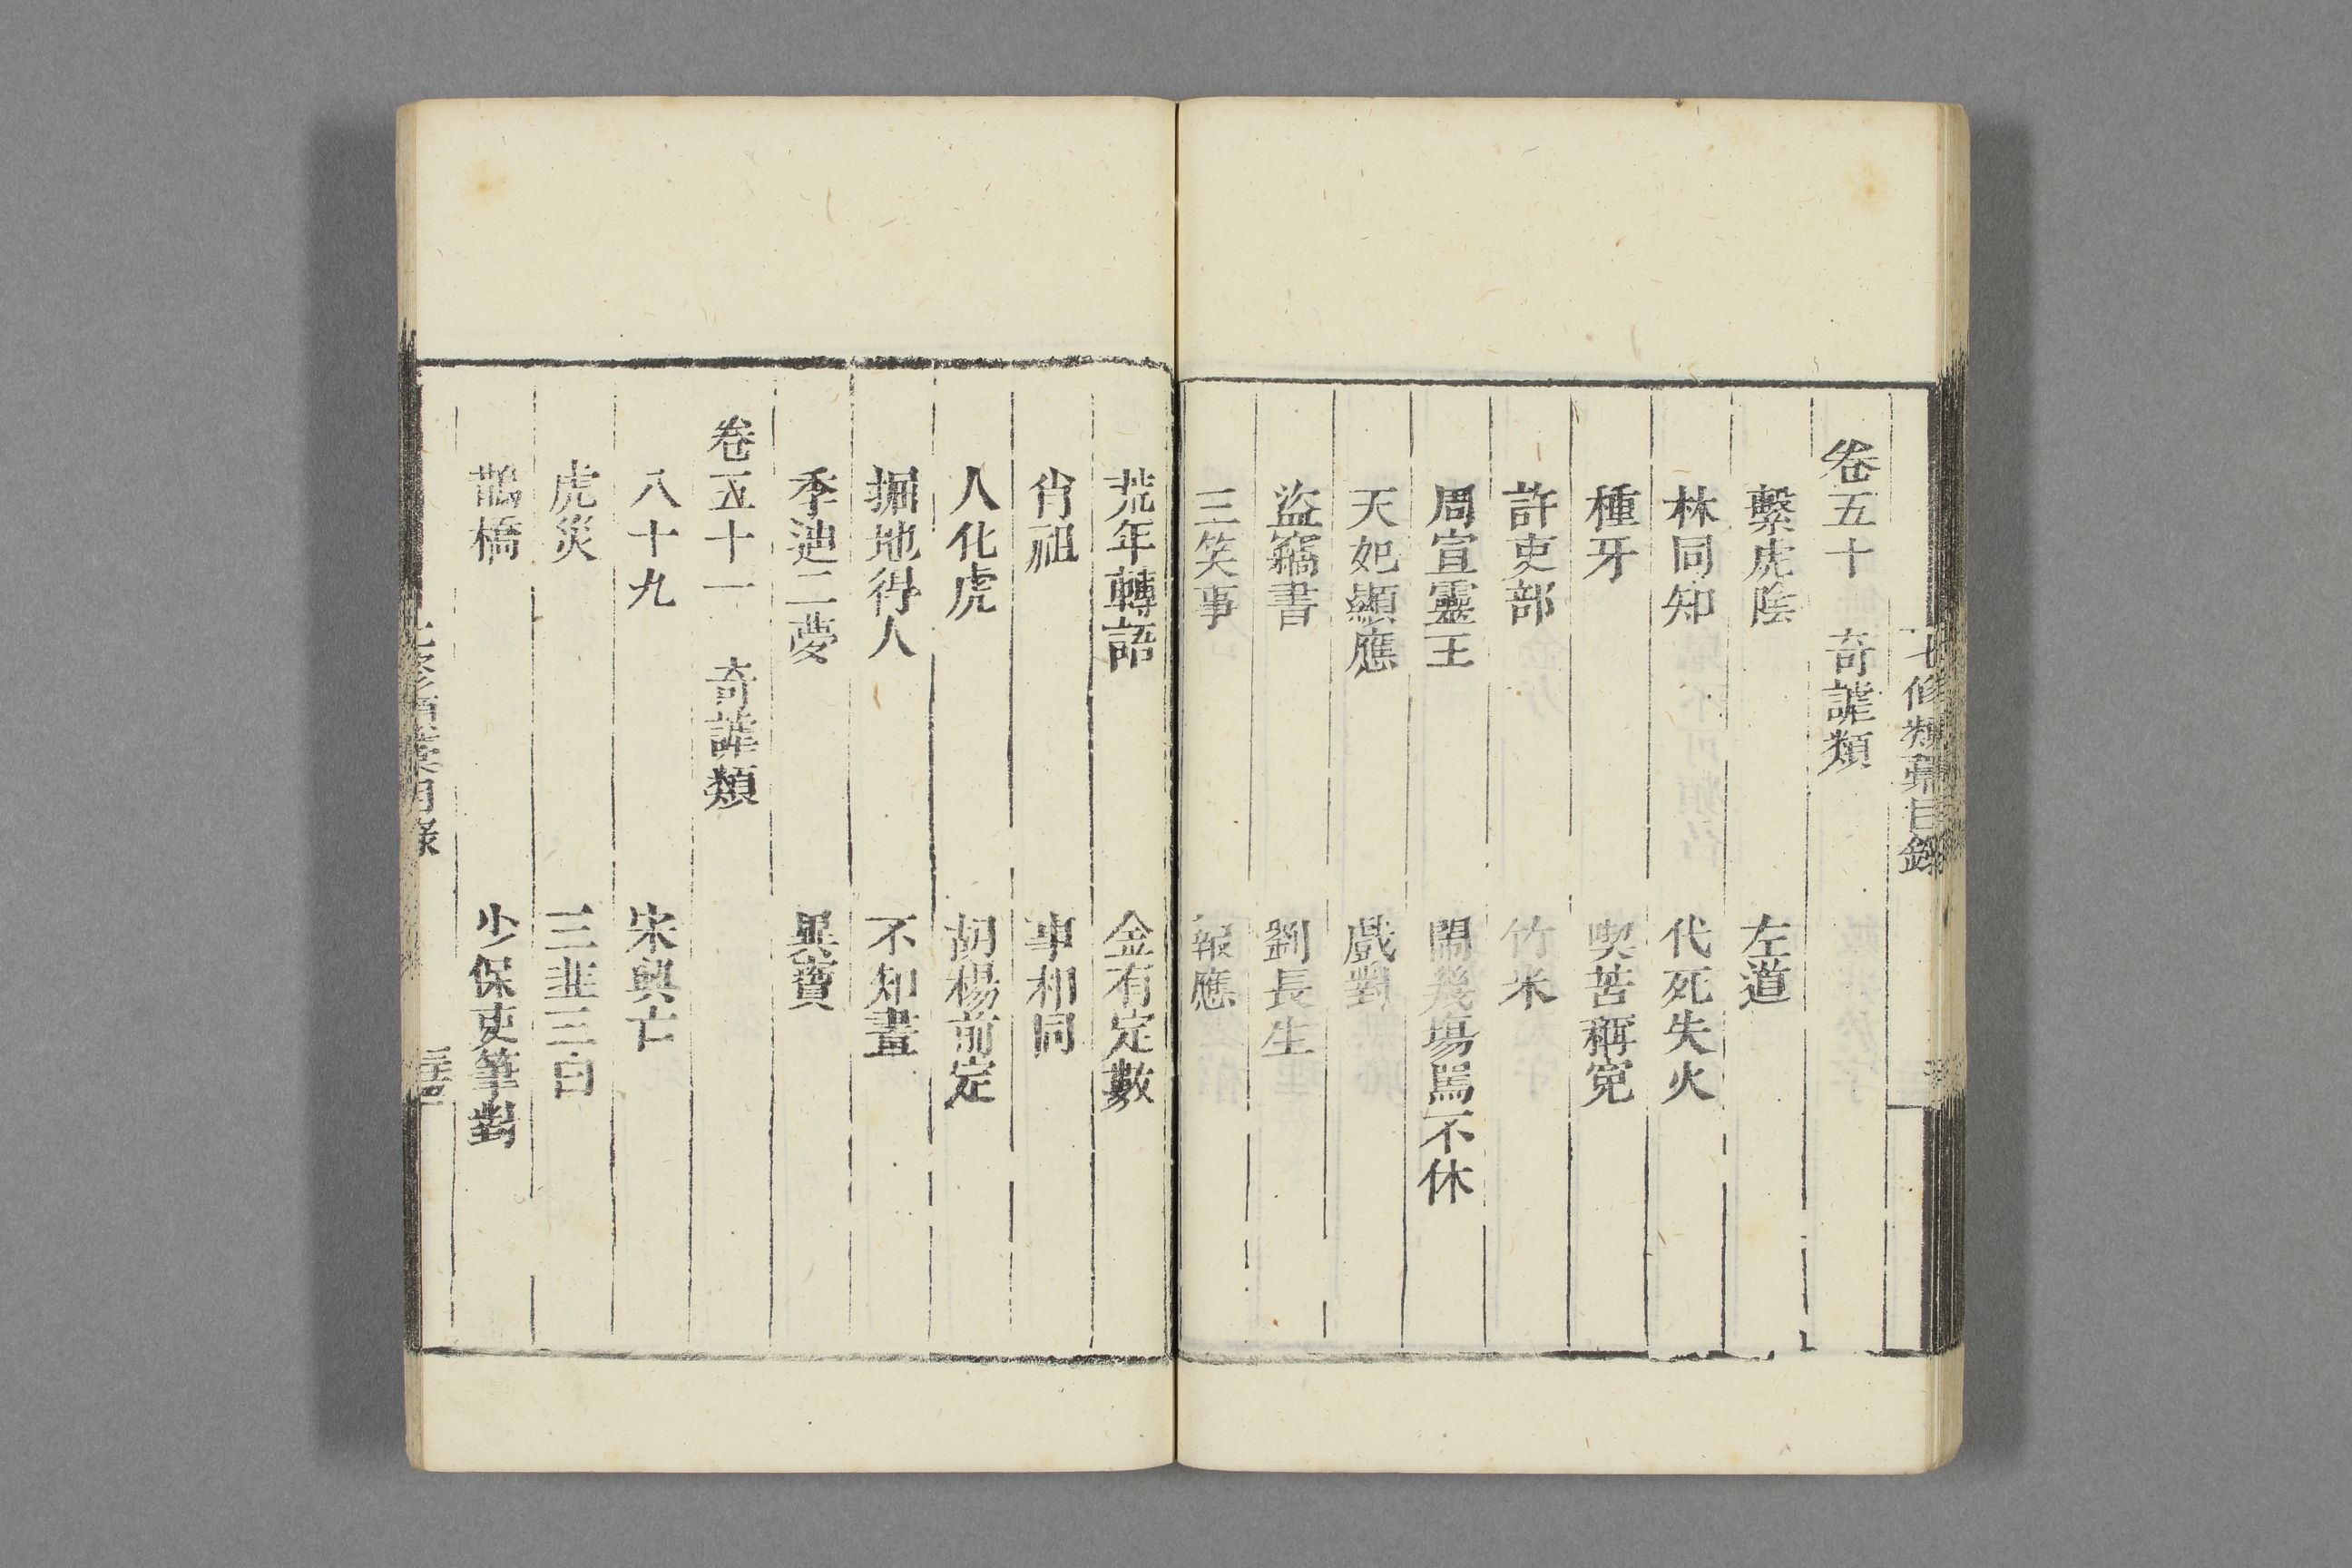 七修類藁目錄
卷五十　奇謔類
繫虎陰　左道
林同知　代死失火
種牙　喫苦稱寃
許吏部　竹米
周宣靈王　閙幾塲罵不休
天妃顯應　戲對
盜竊書　劉長生
三笑事　報應
荒年轉語　金有定數
肖祖　事相同
人化虎　胡楊前定
掘地得人　不知畫
季迪二夢　異寶
卷五十一　奇謔類
八十九　宋興亡
虎災　三韭三白
鵲橋　少保吏筆對